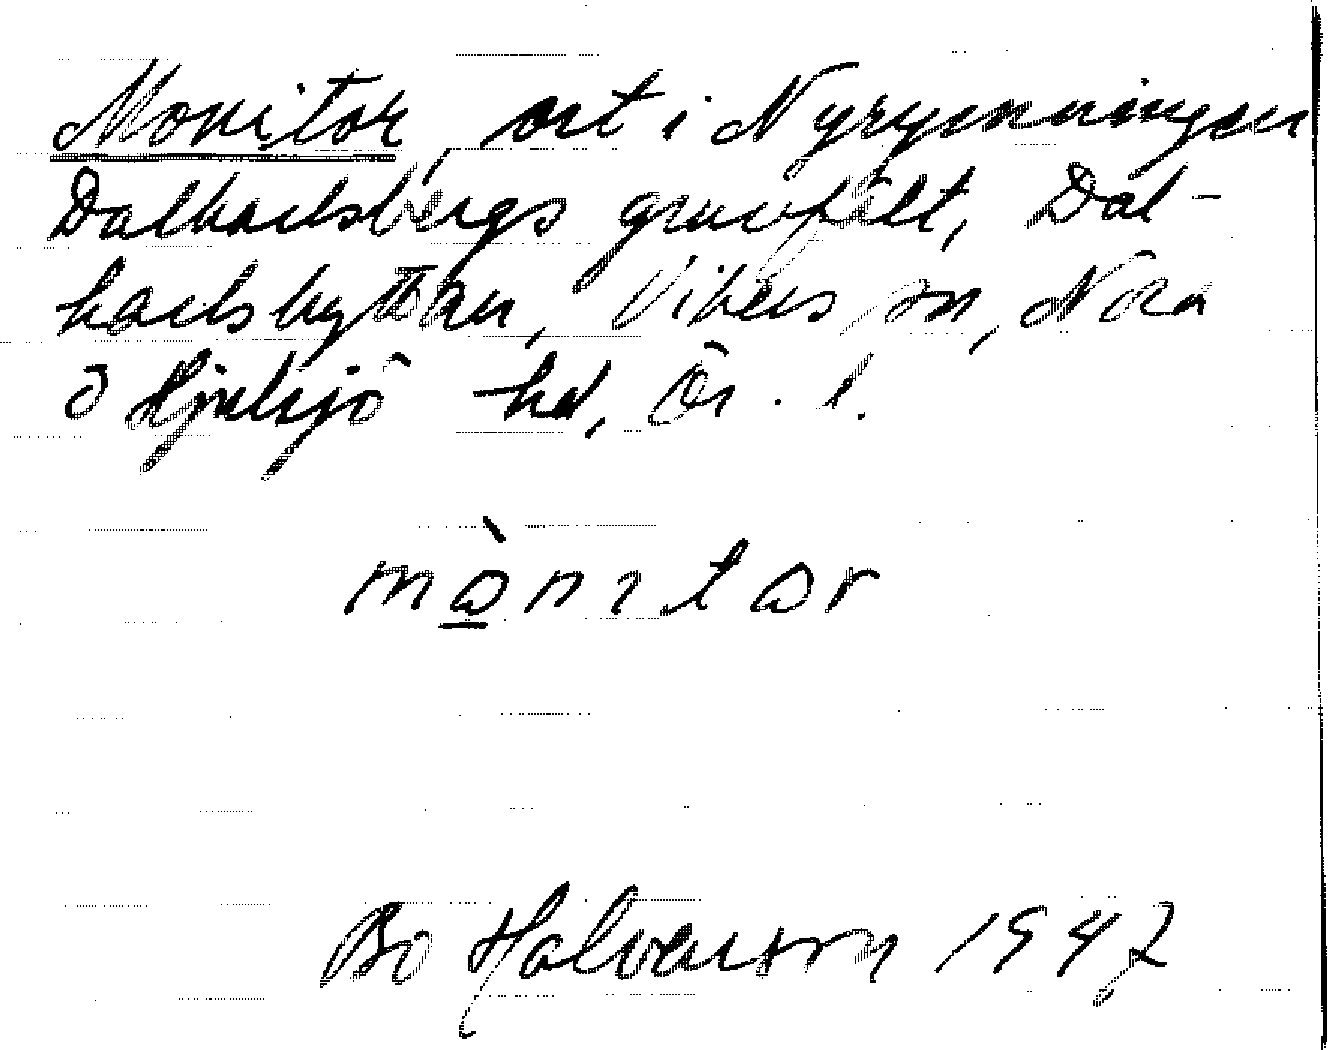 Monitor, ort i Nyrymningen
Dalkarlsbergs gruvfält, Dal-
karlshyttan, Vikers sn, Nora
o Hjulsjö hd, Ör. l.
mònitor
Bo Halvarson 1947